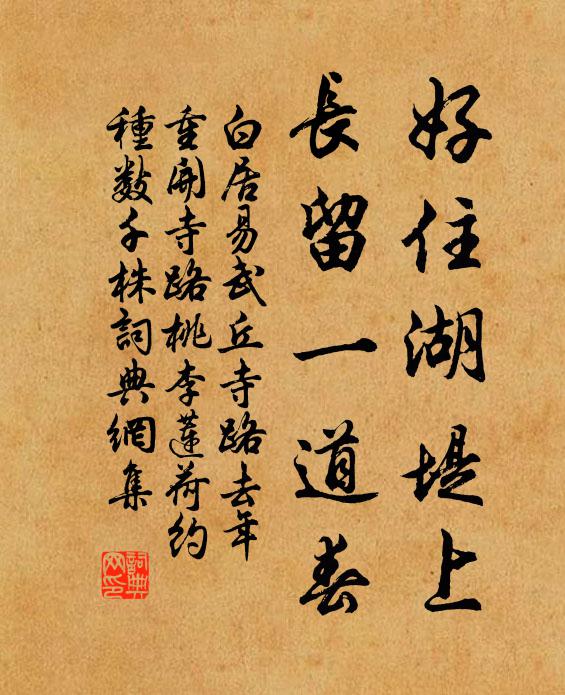 好住湖堤上
長留一道春
白居易武丘寺路去年
重開寺路桃李蓮荷約
種數千株詞典網集
詞典
网印